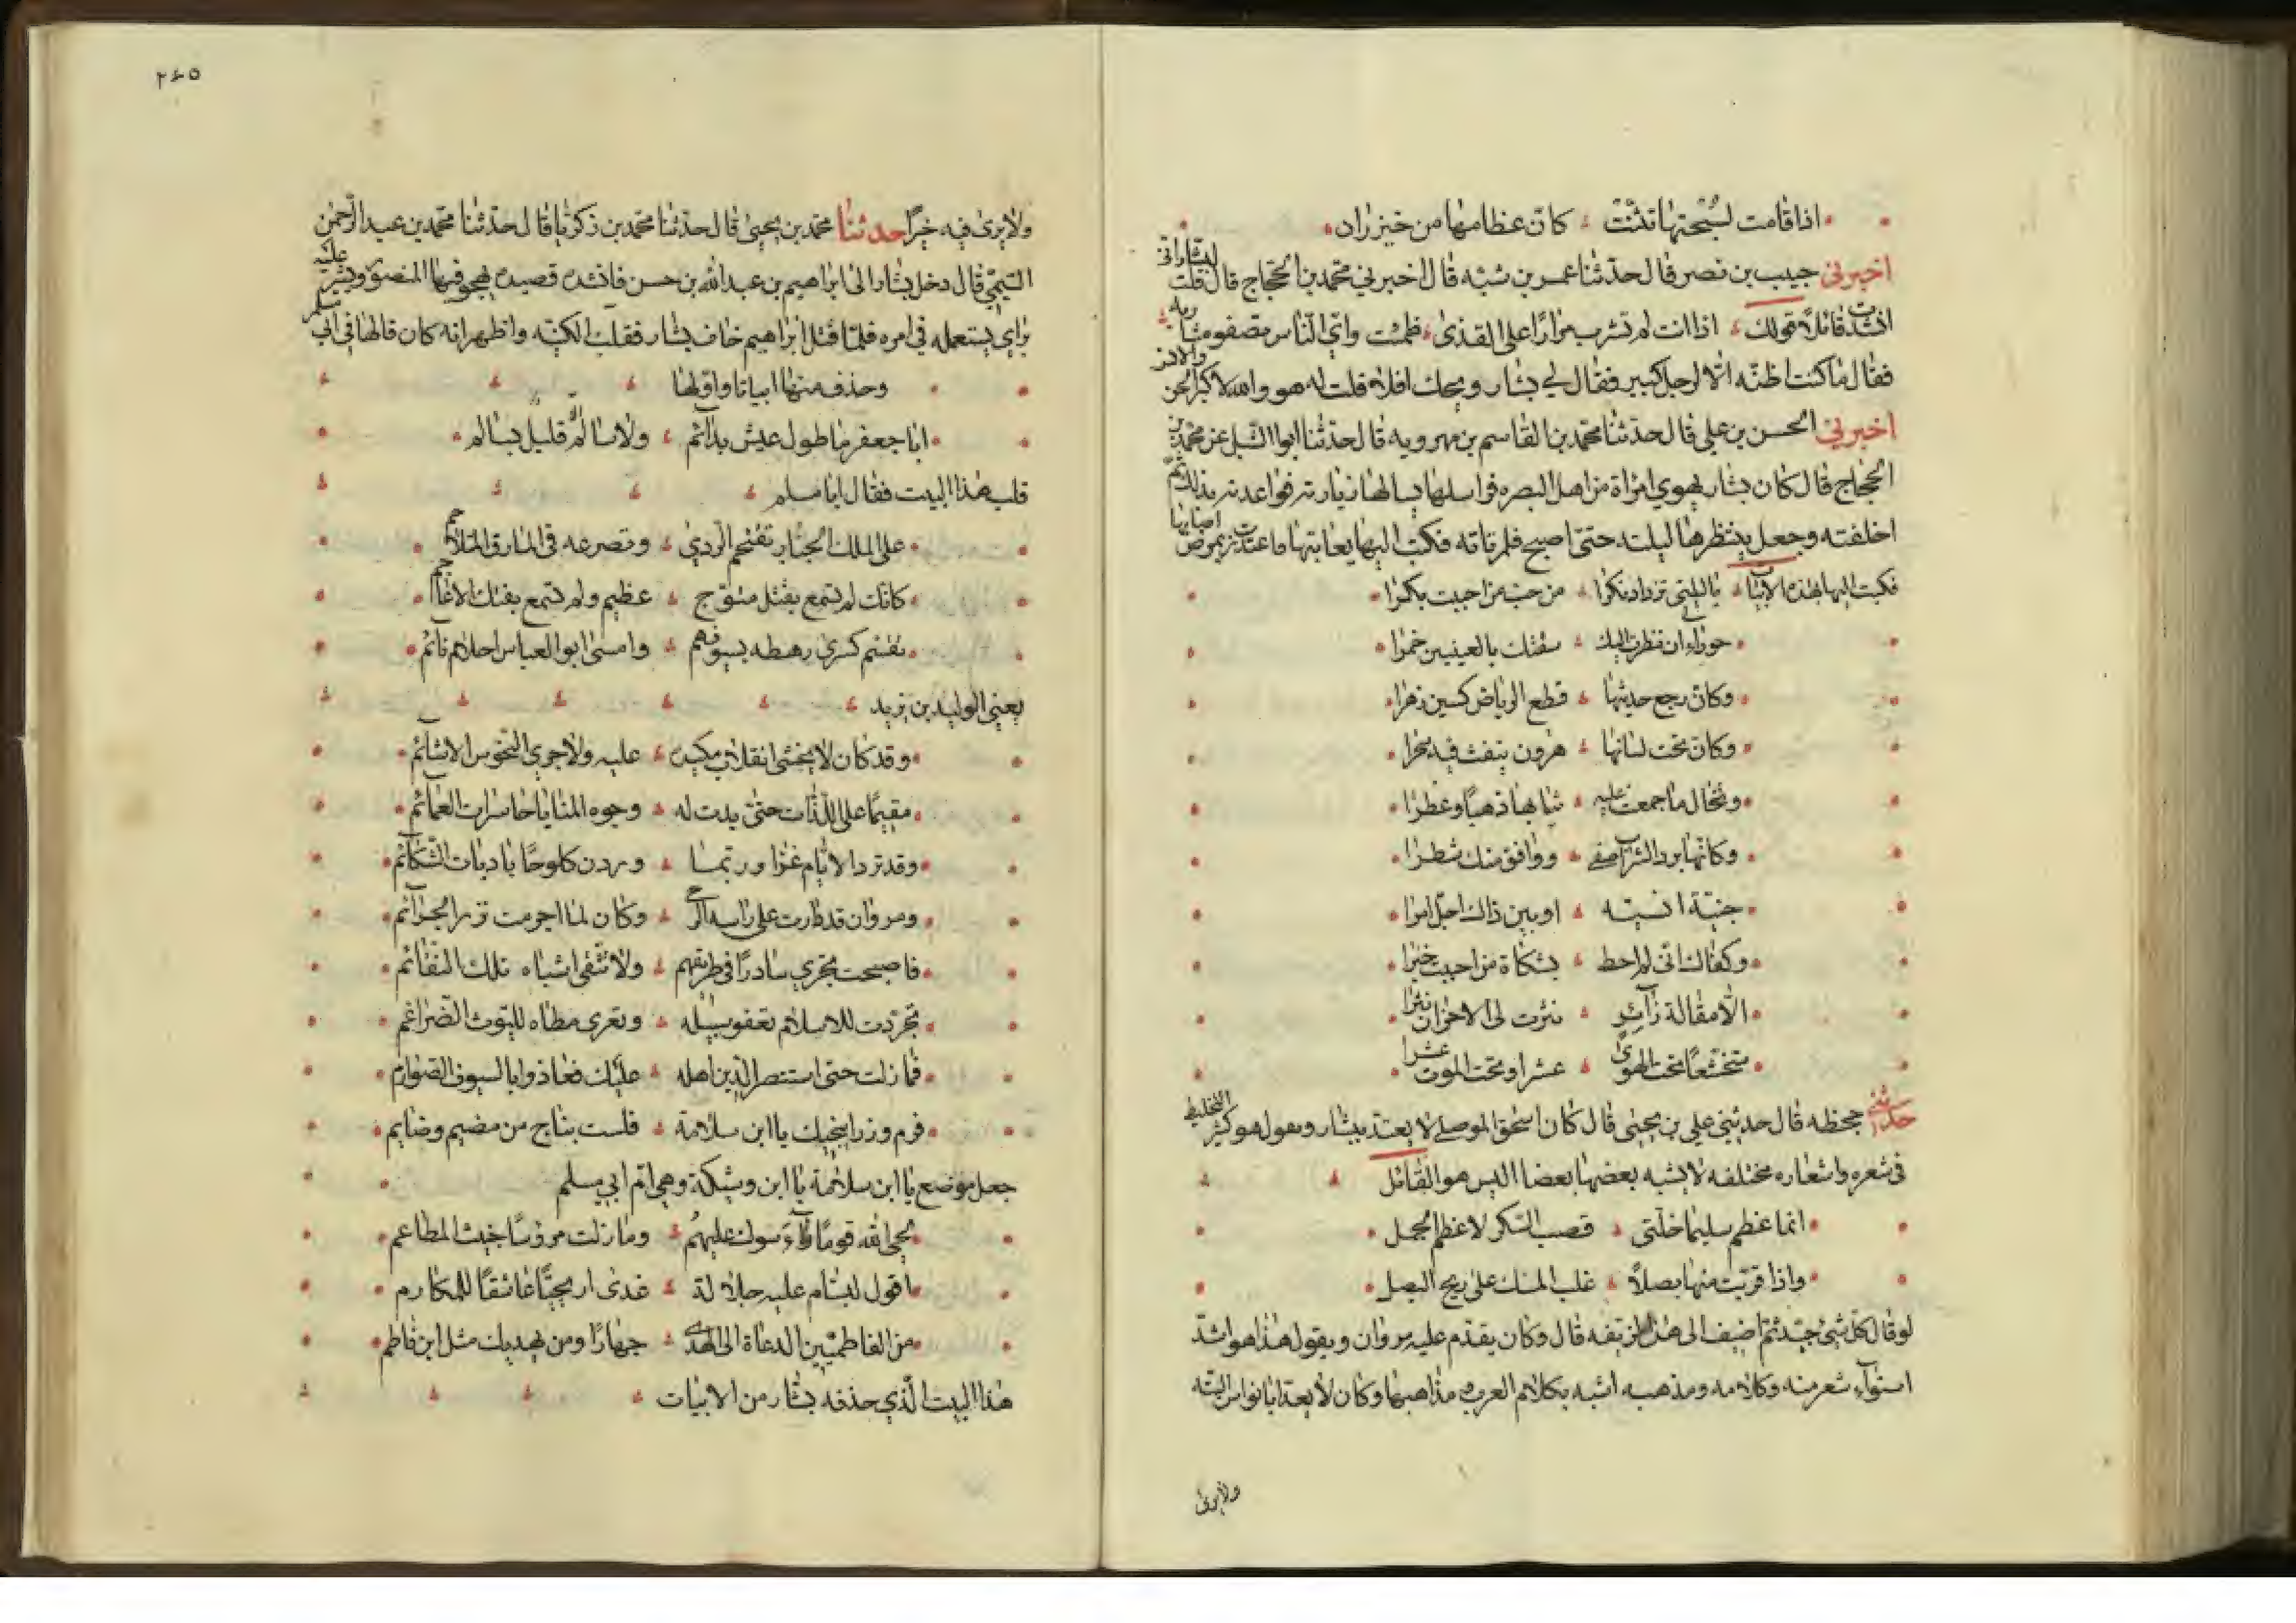 اذا قامت لسُبحتها تثنّت كانّ عظامها من خيزران
اخبرني حبيب بن نصر قال حدثنا عمر بن شبّه قال اخبرني محمد بن الحجّاج قال قلت لبشار اني
انشدت قائلاً قولك اذا انت لم تشرب مرارًا على القذى ظمئت وايّ النّاس تصفو مشاربه
فقال ما كنت اظنّه الّا لرجل كبير فقال لي بشار ويحك افلا قلت له هو والله لاكبر الجن والانس
اخبرني الحسن بن علي قال حدثنا محمد بن القاسم بن مهرويه قال حدثنا ابوا الشبل عن محمد بن
الحجاج قال كان بشار يهوي امراة من اهل البصره فراسلها يسالها زيارته فواعدته بذلك ثم
اخلفته وجعل ينتظرها ليلته حتى اصبح فلم تاته فكتب اليها يعاتبها فاعتذرت بمرض اصابها
فكتب اليها بهذه الابيات يا ليلتي تزداد نكرا من حب من احببت بكرا
حوراء ان نظرت اليك سقتك بالعينين خمرا
وكان رجع حديثها قطع الرياض كسين زهرا
وكان تحت لسانها هرون ينفث فيه سحرا
وتخال ما جمعت عليه ثيابها ذهبا وعطرا
وكانها برد الشراب صفى ووافق منك شطرا
جنيّة انسيّه او بين ذاك اجلّ امرا
وكفاك انّى لم احط بشكاة من احببت خبرا
الّا مقالة زآئرٍ نثرت لى الاحزان نثرا
متخشّعا تحت الهوى عشرا وتحت الموت عشرا
حدثني جحظه قال حدثني علي بن يحيى قال كان اسحق الموصلى لا يعتد ببشار ويقول هو كثير التخليط
في شعره واشعاره مختلفه لا يشبه بعضها بعضا اليس هو القائل
انما عظم سليما خلّتى قصب السّكر لا عظم الجمل
واذا قربت منها بصلًا غلب المسك على ريح البصل
لو قال كل شئ جيّد ثم اضيف الى هذا لزيّفه قال وكان يقدّم عليه مروان ويقول هذا هو اشدّ
استوآء شعر منه وكلامه ومذهبه اشبه بكلام العرب ومذاهبها وكان لا يعد ابا نواس البته
ولا يرى
٢٤٥
ولا يرى فيه خيرًا حدثنا محمد بن يحيى قال حدثنا محمد بن زكريا قال حدثنا محمد بن عبد الرّحمن
التيمي قال دخل بشار الى ابراهيم بن عبد الله بن حسن فانشده قصيده يهجو فيها المنصور ويشير عليه
براي يستعمله في امره فلمّا قتل ابراهيم خاف بشار فقلب الكنيّه واظهر انه كان قالها في ابي مسلم
وحذف منها ابياتا واوّلها
ابا جعفر ما طول عيش بدآئم ولا سالم قليل بسالم
قلب هذا البيت فقال ابا مسلم
على الملك الجبّار تقتحم الردى وتصرعه في المازق المتلاحم
كانك لم تسمع بقتل متوّج عظيم ولم تسمع بفتك الاعاجم
تقسّم كسرى رهطه بسيوفهم وامسى ابو العباس احلام نآئم
يعني الوليد بن يزيد
وقد كان لا يخشى انقلاب مكيدة عليه ولا جرى النحوس الاشآئم
مقيمًا على اللّذات حتى بدت له وجوه المنايا حاسرات العمآئم
وقد ترد الايّام غرّا وربّما وردن كلوحًا باديات الشّكآئم
ومروان قد دارت على راسه الرحى وكان لما اجرمت نزر الجرآئم
فاصبحت تجري سادرًا في طريقهم ولا تتّقى اشباه تلك النقائم
تجرّدت للاسلام تعفو سبيله وتعرى مطاه لليوث الضّراغم
فما زلت حتى استنصر الدين اهله عليك فعاذوا بالسيوف الصّوارم
فرم وزرا ينجيك يا ابن سلامة فلست بناج من مضيم وضايم
جعل موضع يا ابن سلامة يا ابن وشيكة وهي امّ ابي مسلم
لحى الله قومًا رآسوك عليهم وما زلت مرؤسًا خبيث المطاعم
اقول لبسّام عليه جلالة غدى اريحيًّا عاشقًا للمكارم
من الفاطميّين الدعاة الى الهدى جهارًا ومن يهديك مثل ابن فاطم
هذا البيت الّذي حذفه بشار من الابيات